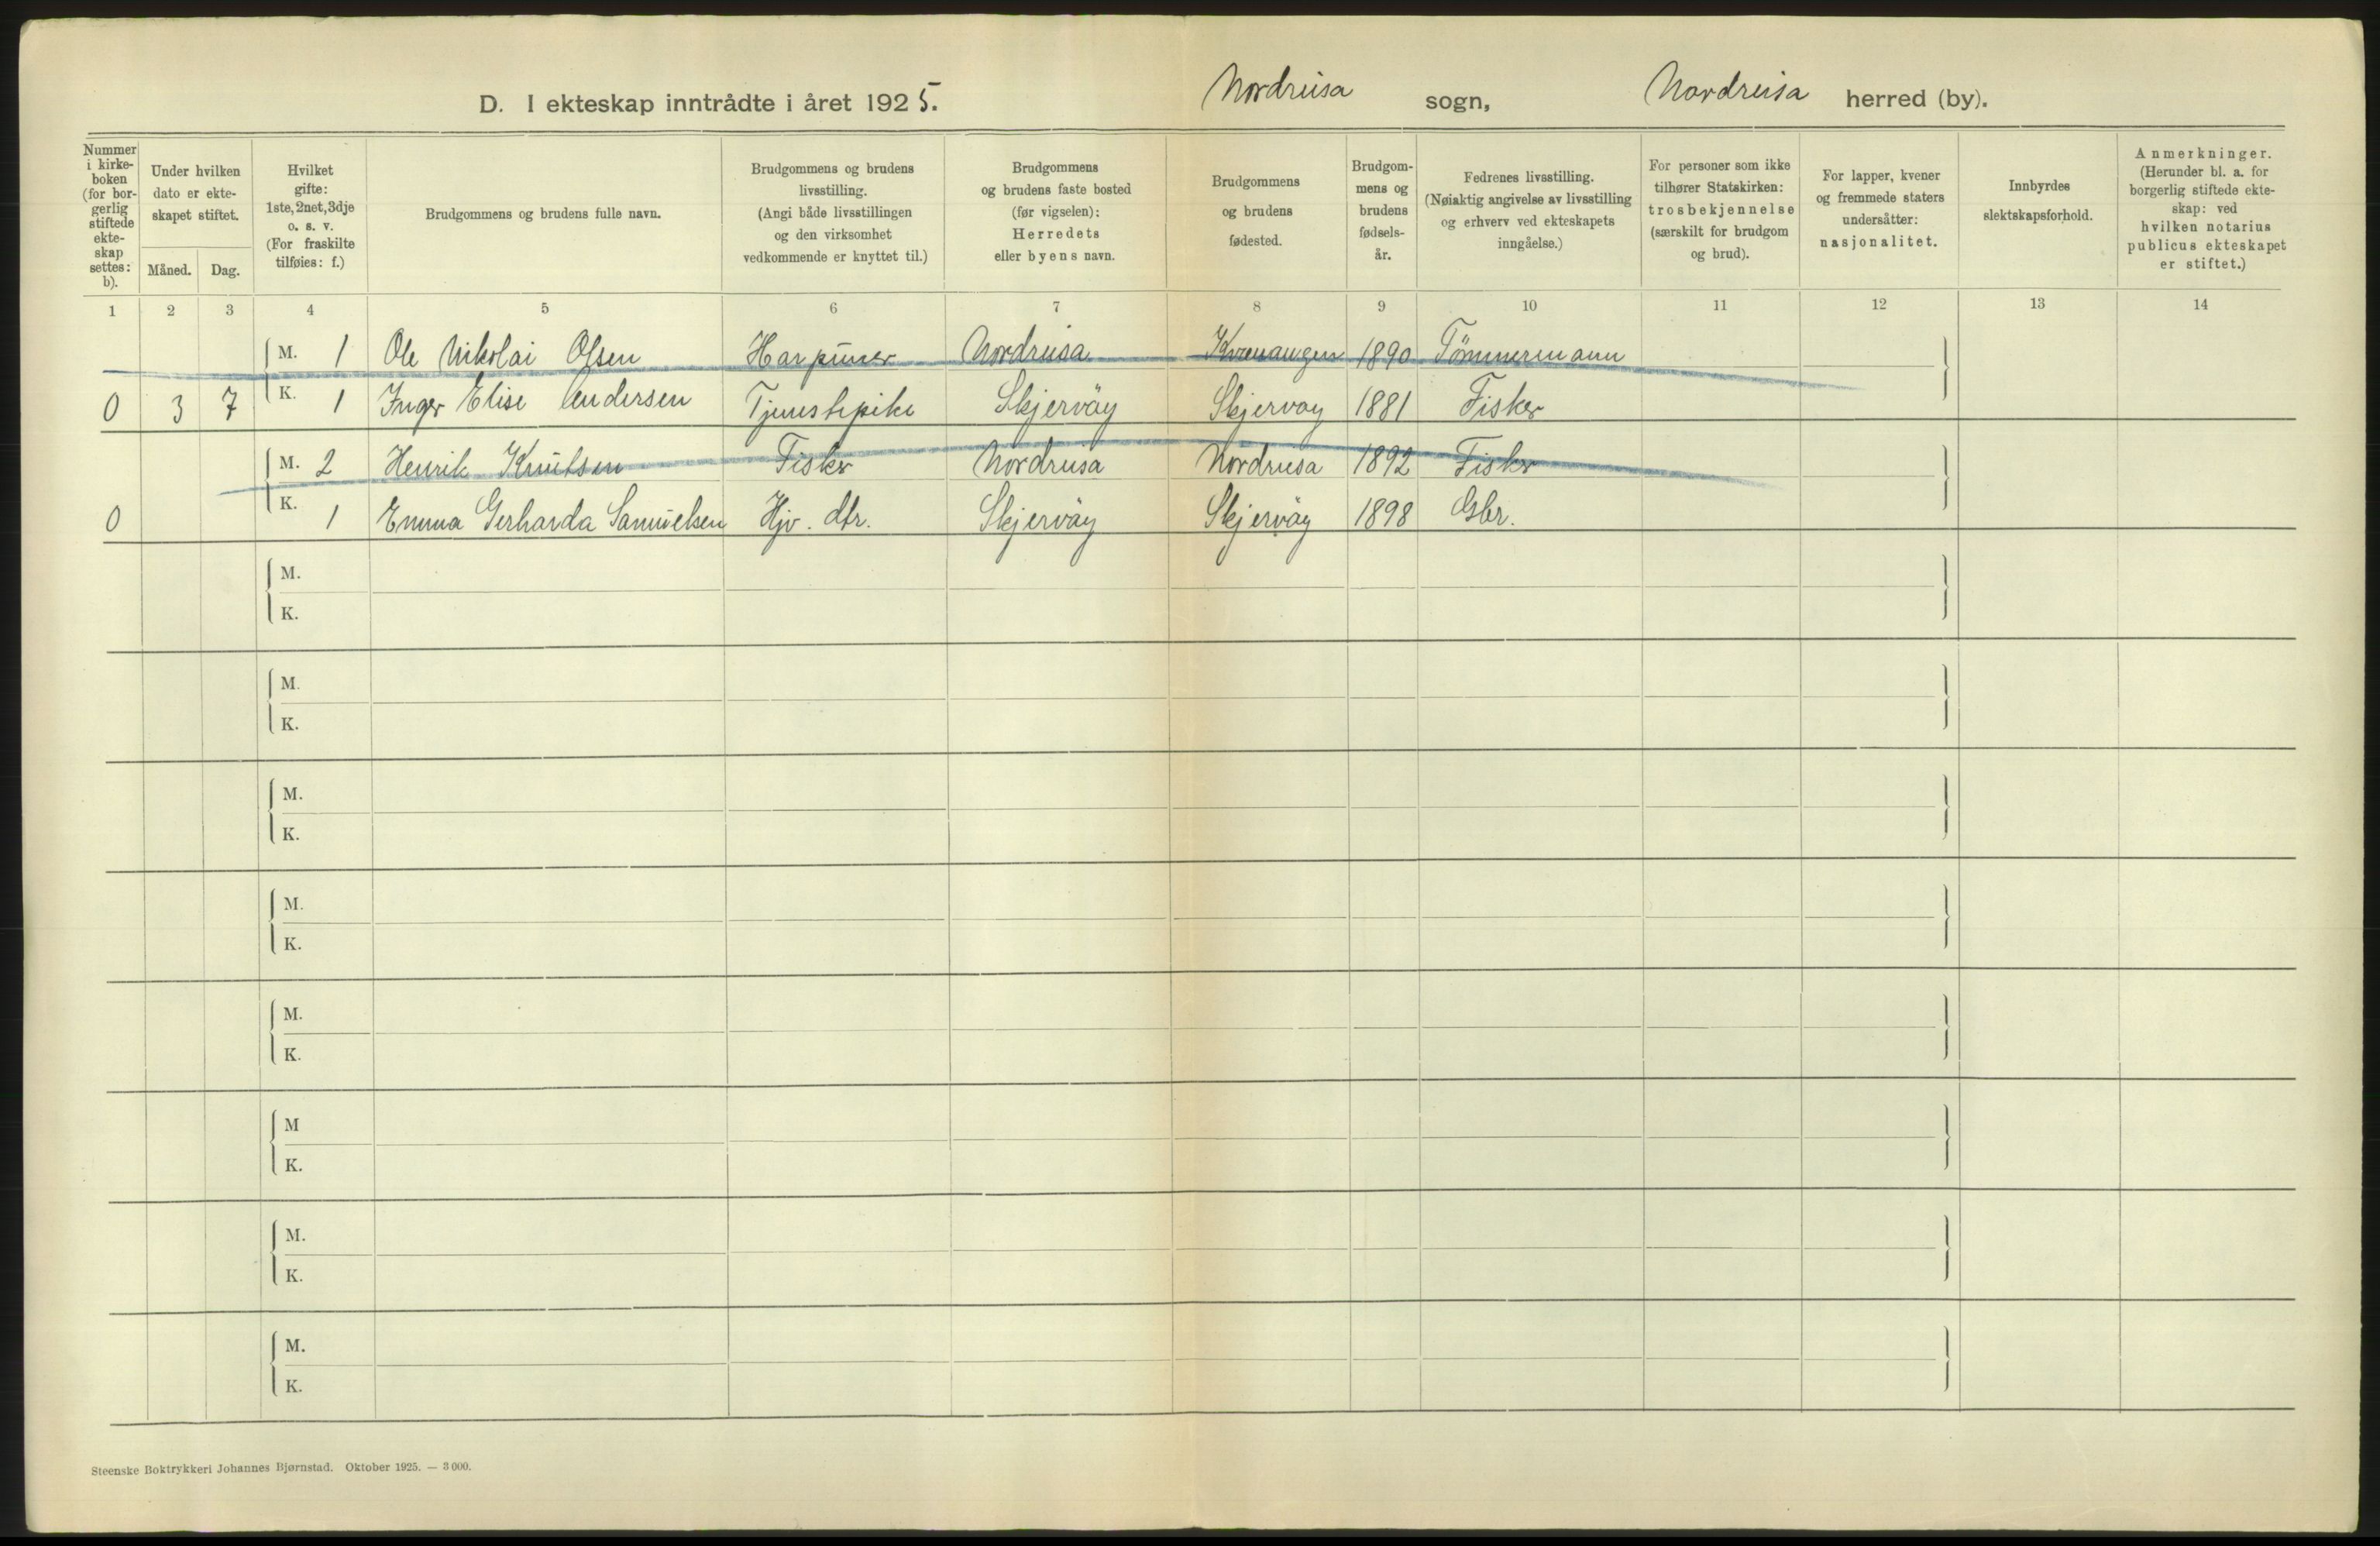 D. I ekteskap inntrådte i året 1925. Nordreisa sogn, Nordreisa herred (by).
Nummer i kirke-boken (for bor-gerlig stiftede ekte-skap settes: b).
Under hvilken dato er ekte-skapet stiftet.
Måned. Dag.
Hvilket gifte: 1ste, 2net, 3dje o. s. v. (For fraskilte tilføies: f.)
Brudgommens og brudens fulle navn.
Brudgommens og brudens livsstilling. (Angi både livsstillingen og den virksomhet vedkommende er knyttet til.)
Brudgommens og brudens faste bosted (før vigselen): Herredets eller byens navn.
Brudgommens og brudens fødested.
Brudgom-mens og brudens fødsels-år.
Fedrenes livsstilling. (Nøiaktig angivelse av livsstilling og erhverv ved ekteskapets inngåelse.)
For personer som ikke tilhører Statskirken: trosbekjennelse (særskilt for brudgom og brud).
For lapper, kvener og fremmede staters undersåtter: nasjonalitet.
Innbyrdes slektskapsforhold.
Anmerkninger. (Herunder bl. a. for borgerlig stiftede ekte-skap: ved hvilken notarius publicus ekteskapet er stiftet.)
1 2 3 4 5 6 7 8 9 10 11 12 13 14
M. 1 Ole Nikolai Olsen Harpuner Nordreisa Kvænangen 1890 Tömmermann
0 3 7 K. 1 Inger Elise Andersen Tjenestepike Skjervöy Skjervoy 1881 Fisker
M. 2 Henrik Knutsen Fisker Nordreisa Nordreisa 1892 Fisker
0 K. 1 Emma Gerharda Samuelsen Hjv. dtr. Skjervöy Skjervöy 1898 Gbr.
M.
K.
M.
K.
M.
K.
M.
K.
M.
K.
M
K.
M.
K.
M.
K.
Steenske Boktrykkeri Johannes Bjørnstad. Oktober 1925. — 3 000.